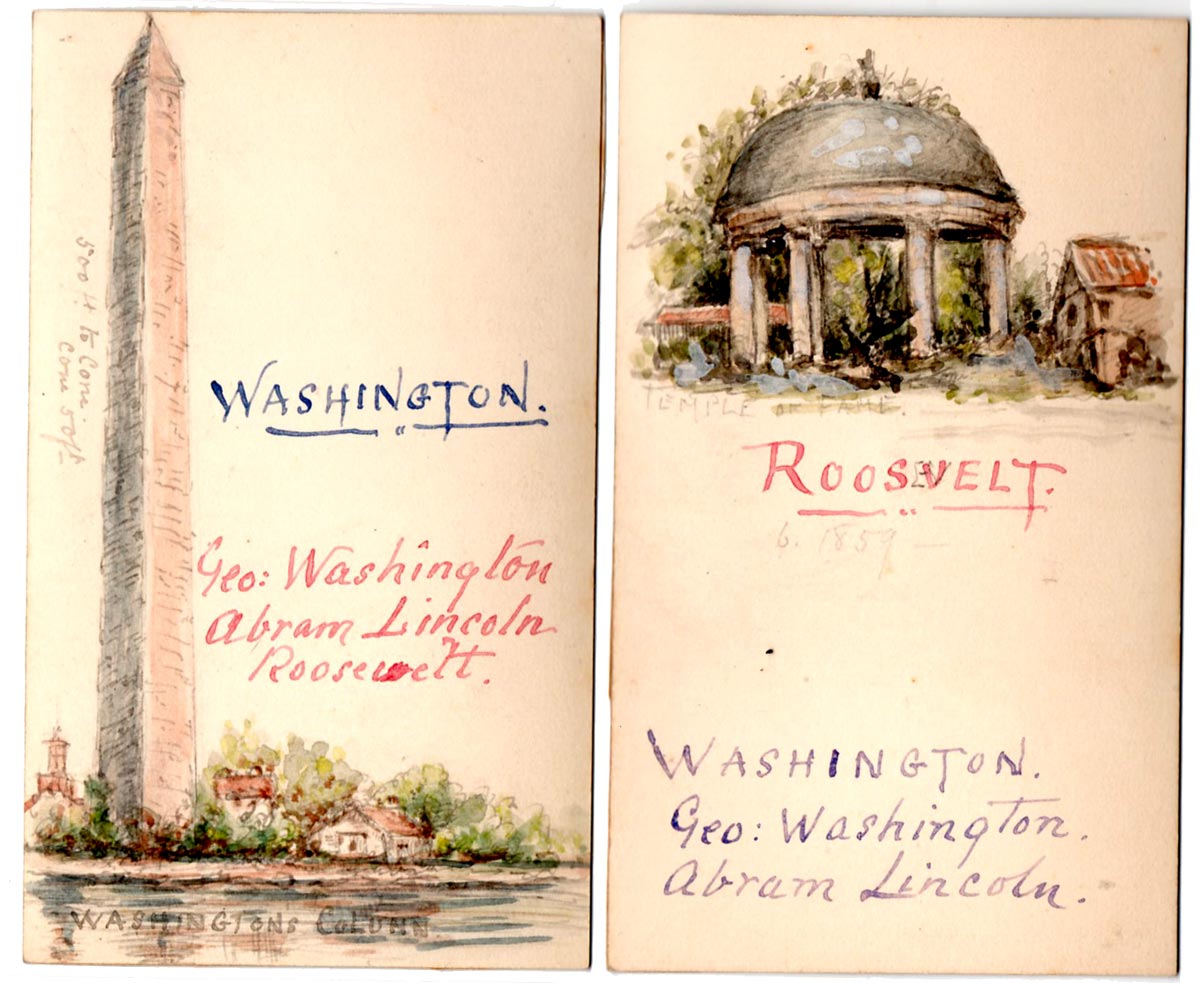 500 ft to Cone.
Cone 50 ft
WASHINGTON.
Geo: Washington
Abram Lincoln
Roosewelt.
WASHINGTON'S COLUMN
TEMPLE OF FAME.
ROOSEVELT.
b. 1859 —
WASHINGTON.
Geo: Washington.
Abram Lincoln.